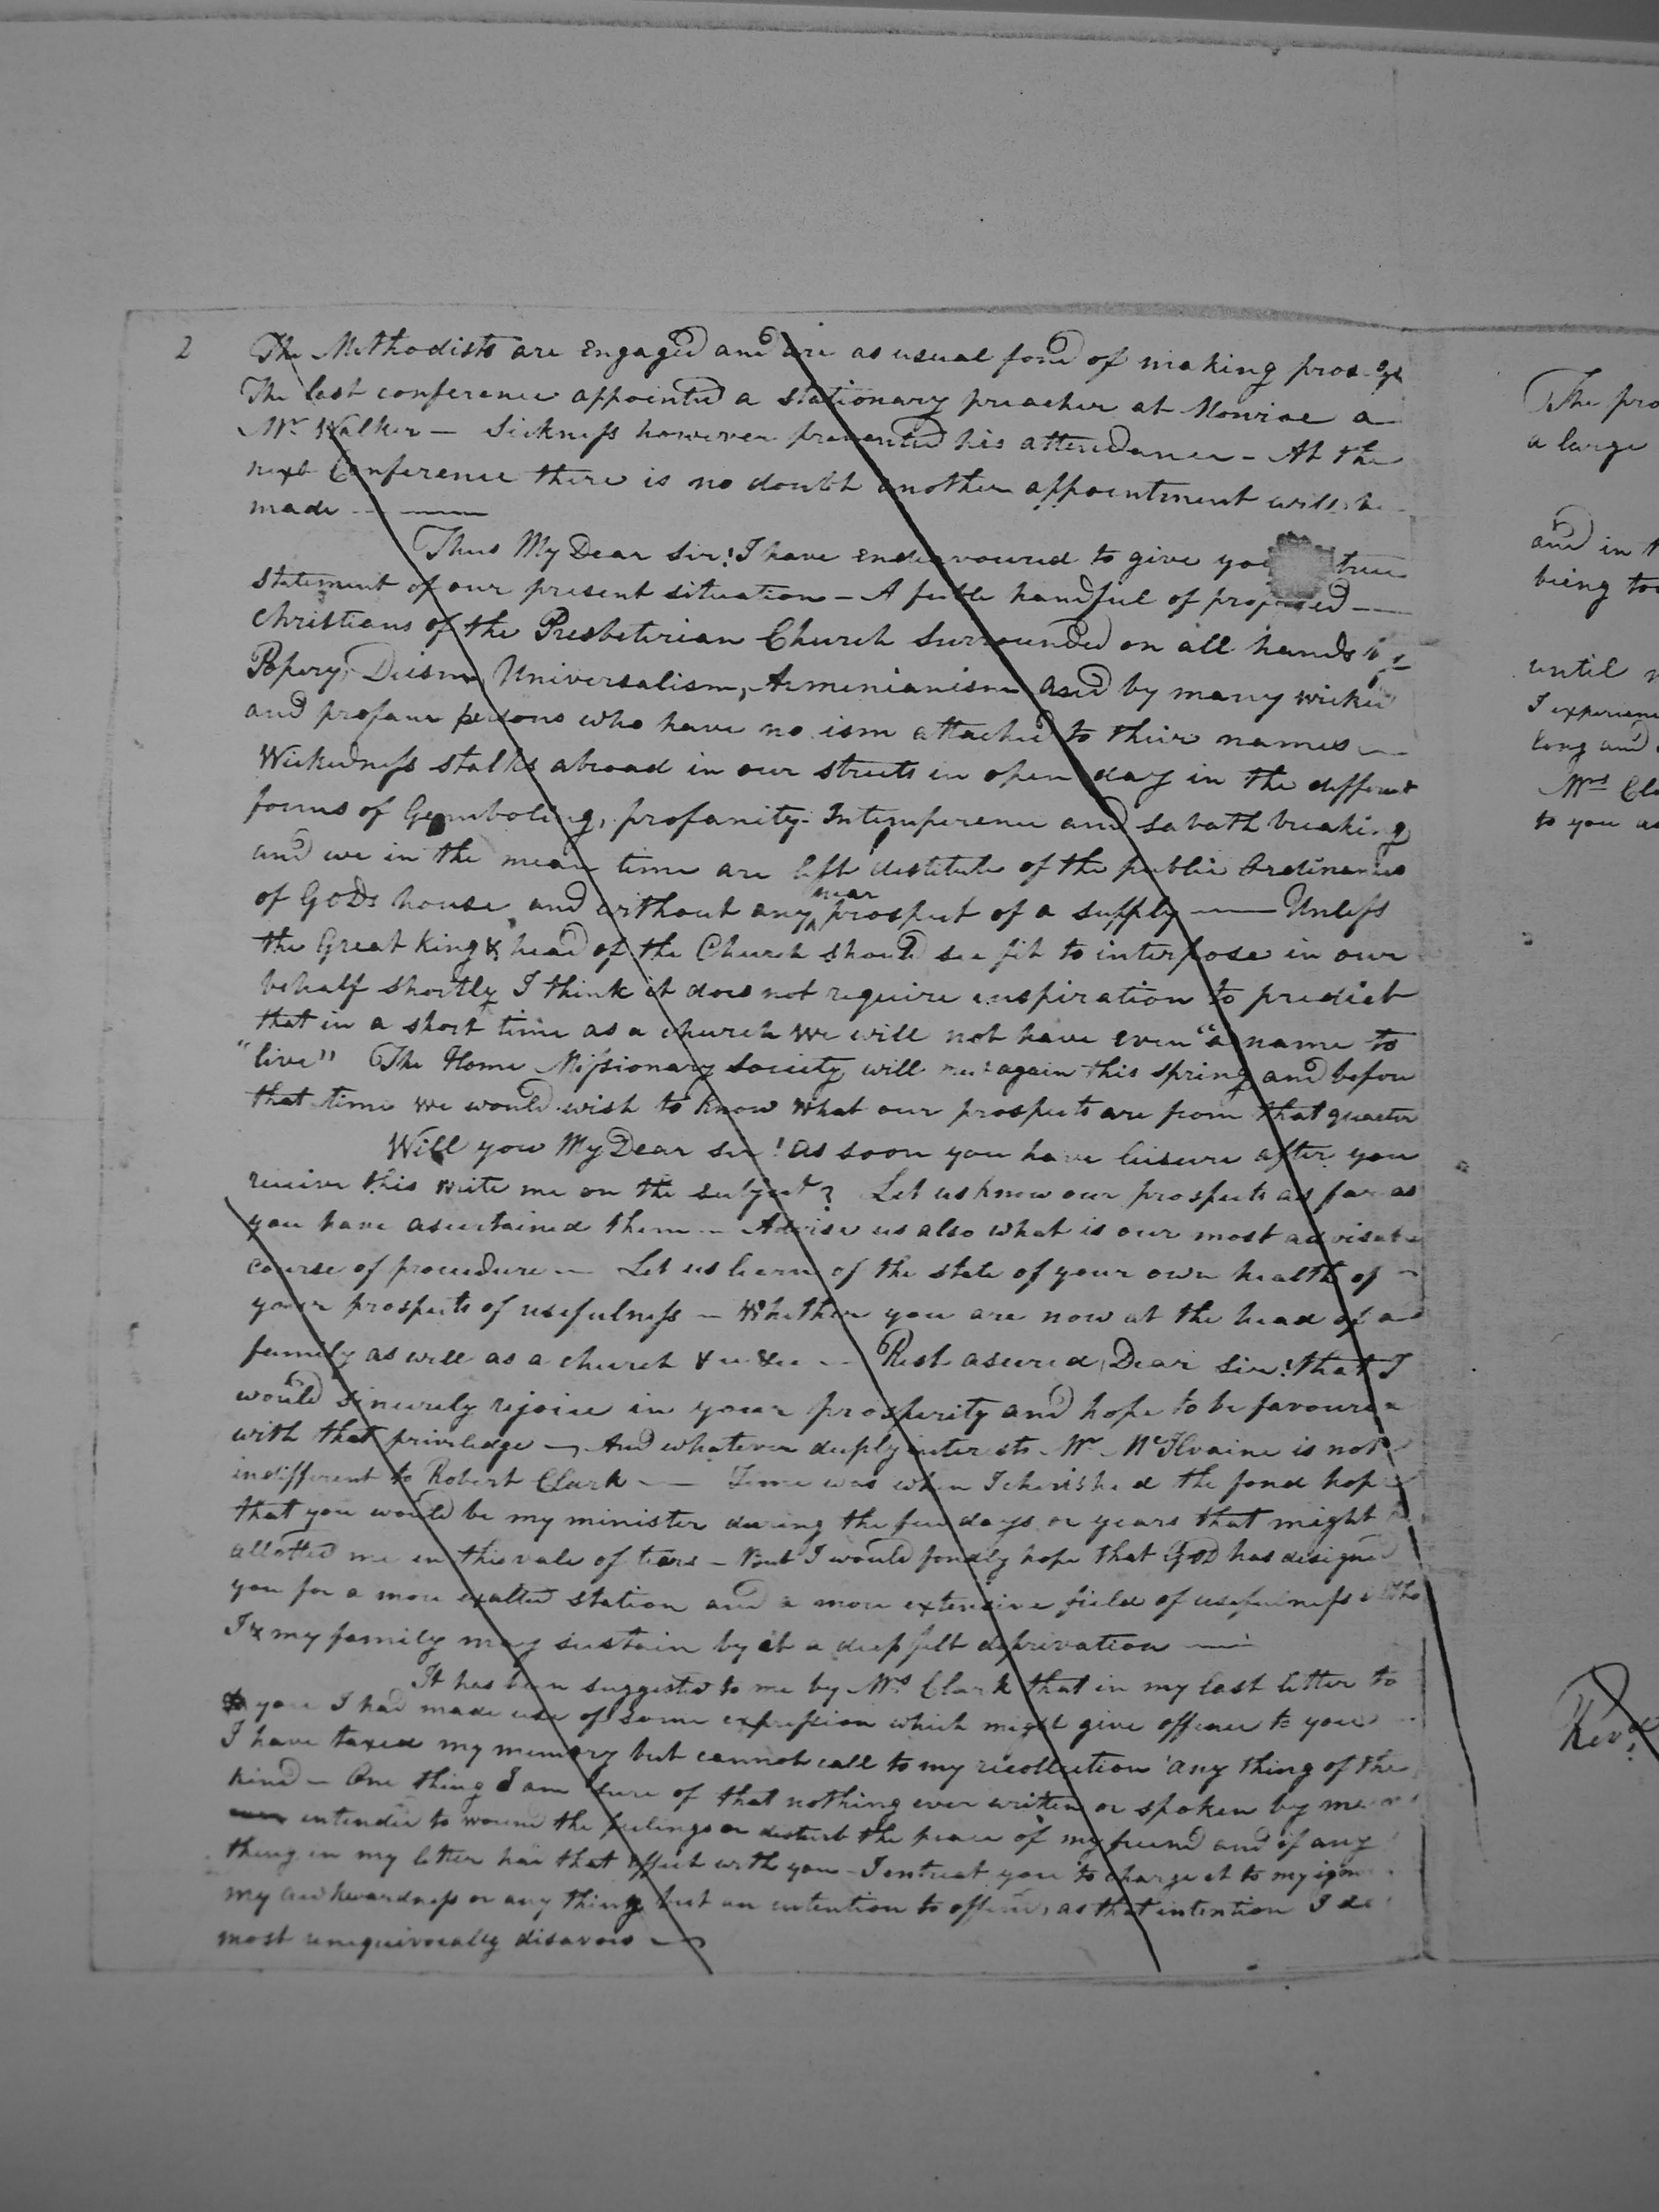 2
The Methodists are Engaged and are as usual fond of making
The last conference appointed a stationary preacher at Monroe a
Mr Walker — Sickness however prevented his attendance — At the
next Conference there is no doubt another appointment will be
made
Thus My Dear Sir! I have endeavoured to give you true
statement of our present situation — A feeble handful of
Christians of the Presbeterian Church Surrounded on all hands by
Popery, Deism, Universalism, Armenianism and by many wicked
and profane persons who have no ism attached to their names —
Wickedness stalks abroad in our streets in open day in the different
forms of Gemboling, profanity - Intemperence and Sabath breaking
and we in the mean time are left destitute of the public Ordinances
of GODs house and without any near prospect of a supply — Unless
the Great King & head of the Church should see fit to interpose in our
behalf shortly I think it does not require inspiration to predict
that in a short time as a church we will not have even "a name to
"live" The Home Missionary Society will meet again this spring and before
that time we would wish to know what our prospects are from that quarter
Will you My Dear Sir! as soon you have leisure after you
receive this write me on the subject? Let us know our prospects as far as
you have ascertained them — Advise us also what is our most
course of procedure — Let us learn of the state of your own health of
your prospects of usefulness — Whether you are now at the head of a
family as well as a church &c &c — Rest asured, Dear Sir! that I
would sincerely rejoice in your prosperity and hope to be favoured
with that priviledge — And whatever deeply interests Mr McIlvaine is not
indifferent to Robert Clark — Time was when I cherished the fond hope
that you would be my minister during the few days or years that might
allotted me in this vale of tears — But I would fondly hope that GOD has designed
you for a more exalted station and a more extensive field of usefulness
I & my family may sustain by it a deep felt deprivation —
It has been suggested to me by Mrs Clark that in my last letter to
you I had made use of some expression which might give offence to you
I have taxed my memory but cannot call to my recollection any thing of the
kind — One thing I am sure of that nothing ever written or spoken by me
intended to wound the feelings or disturb the peace of my friend and if any
thing in my letter had that effect with you — I entreat you to charge it to my
my awkwardness or any thing but an intention to offend, as that intention I do
most unequivocally disavow —
The
a large
and in
being
until
I
long and
Mrs
to you as
Revd.